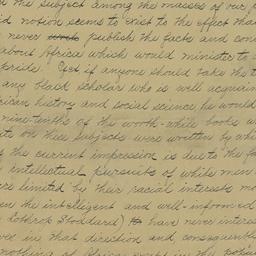 the subject among the masses of our p
id notion seems to exist to the effect that
never publish the facts and con
about Africa which would minister to
pride. Yet if anyone should take the t
any black scholar who is well acquain
rican history and social science he would
nine-tenths of the worth-while books a
ts on these subjects were written by wh
of the current impression is due to the fa
intellectual pursuits of white men
ere limited by their racial interests mo
en the intelligent and well-informed
Lothrop Stoddard) have never intere
lves in that direction and consequentl
nothing of